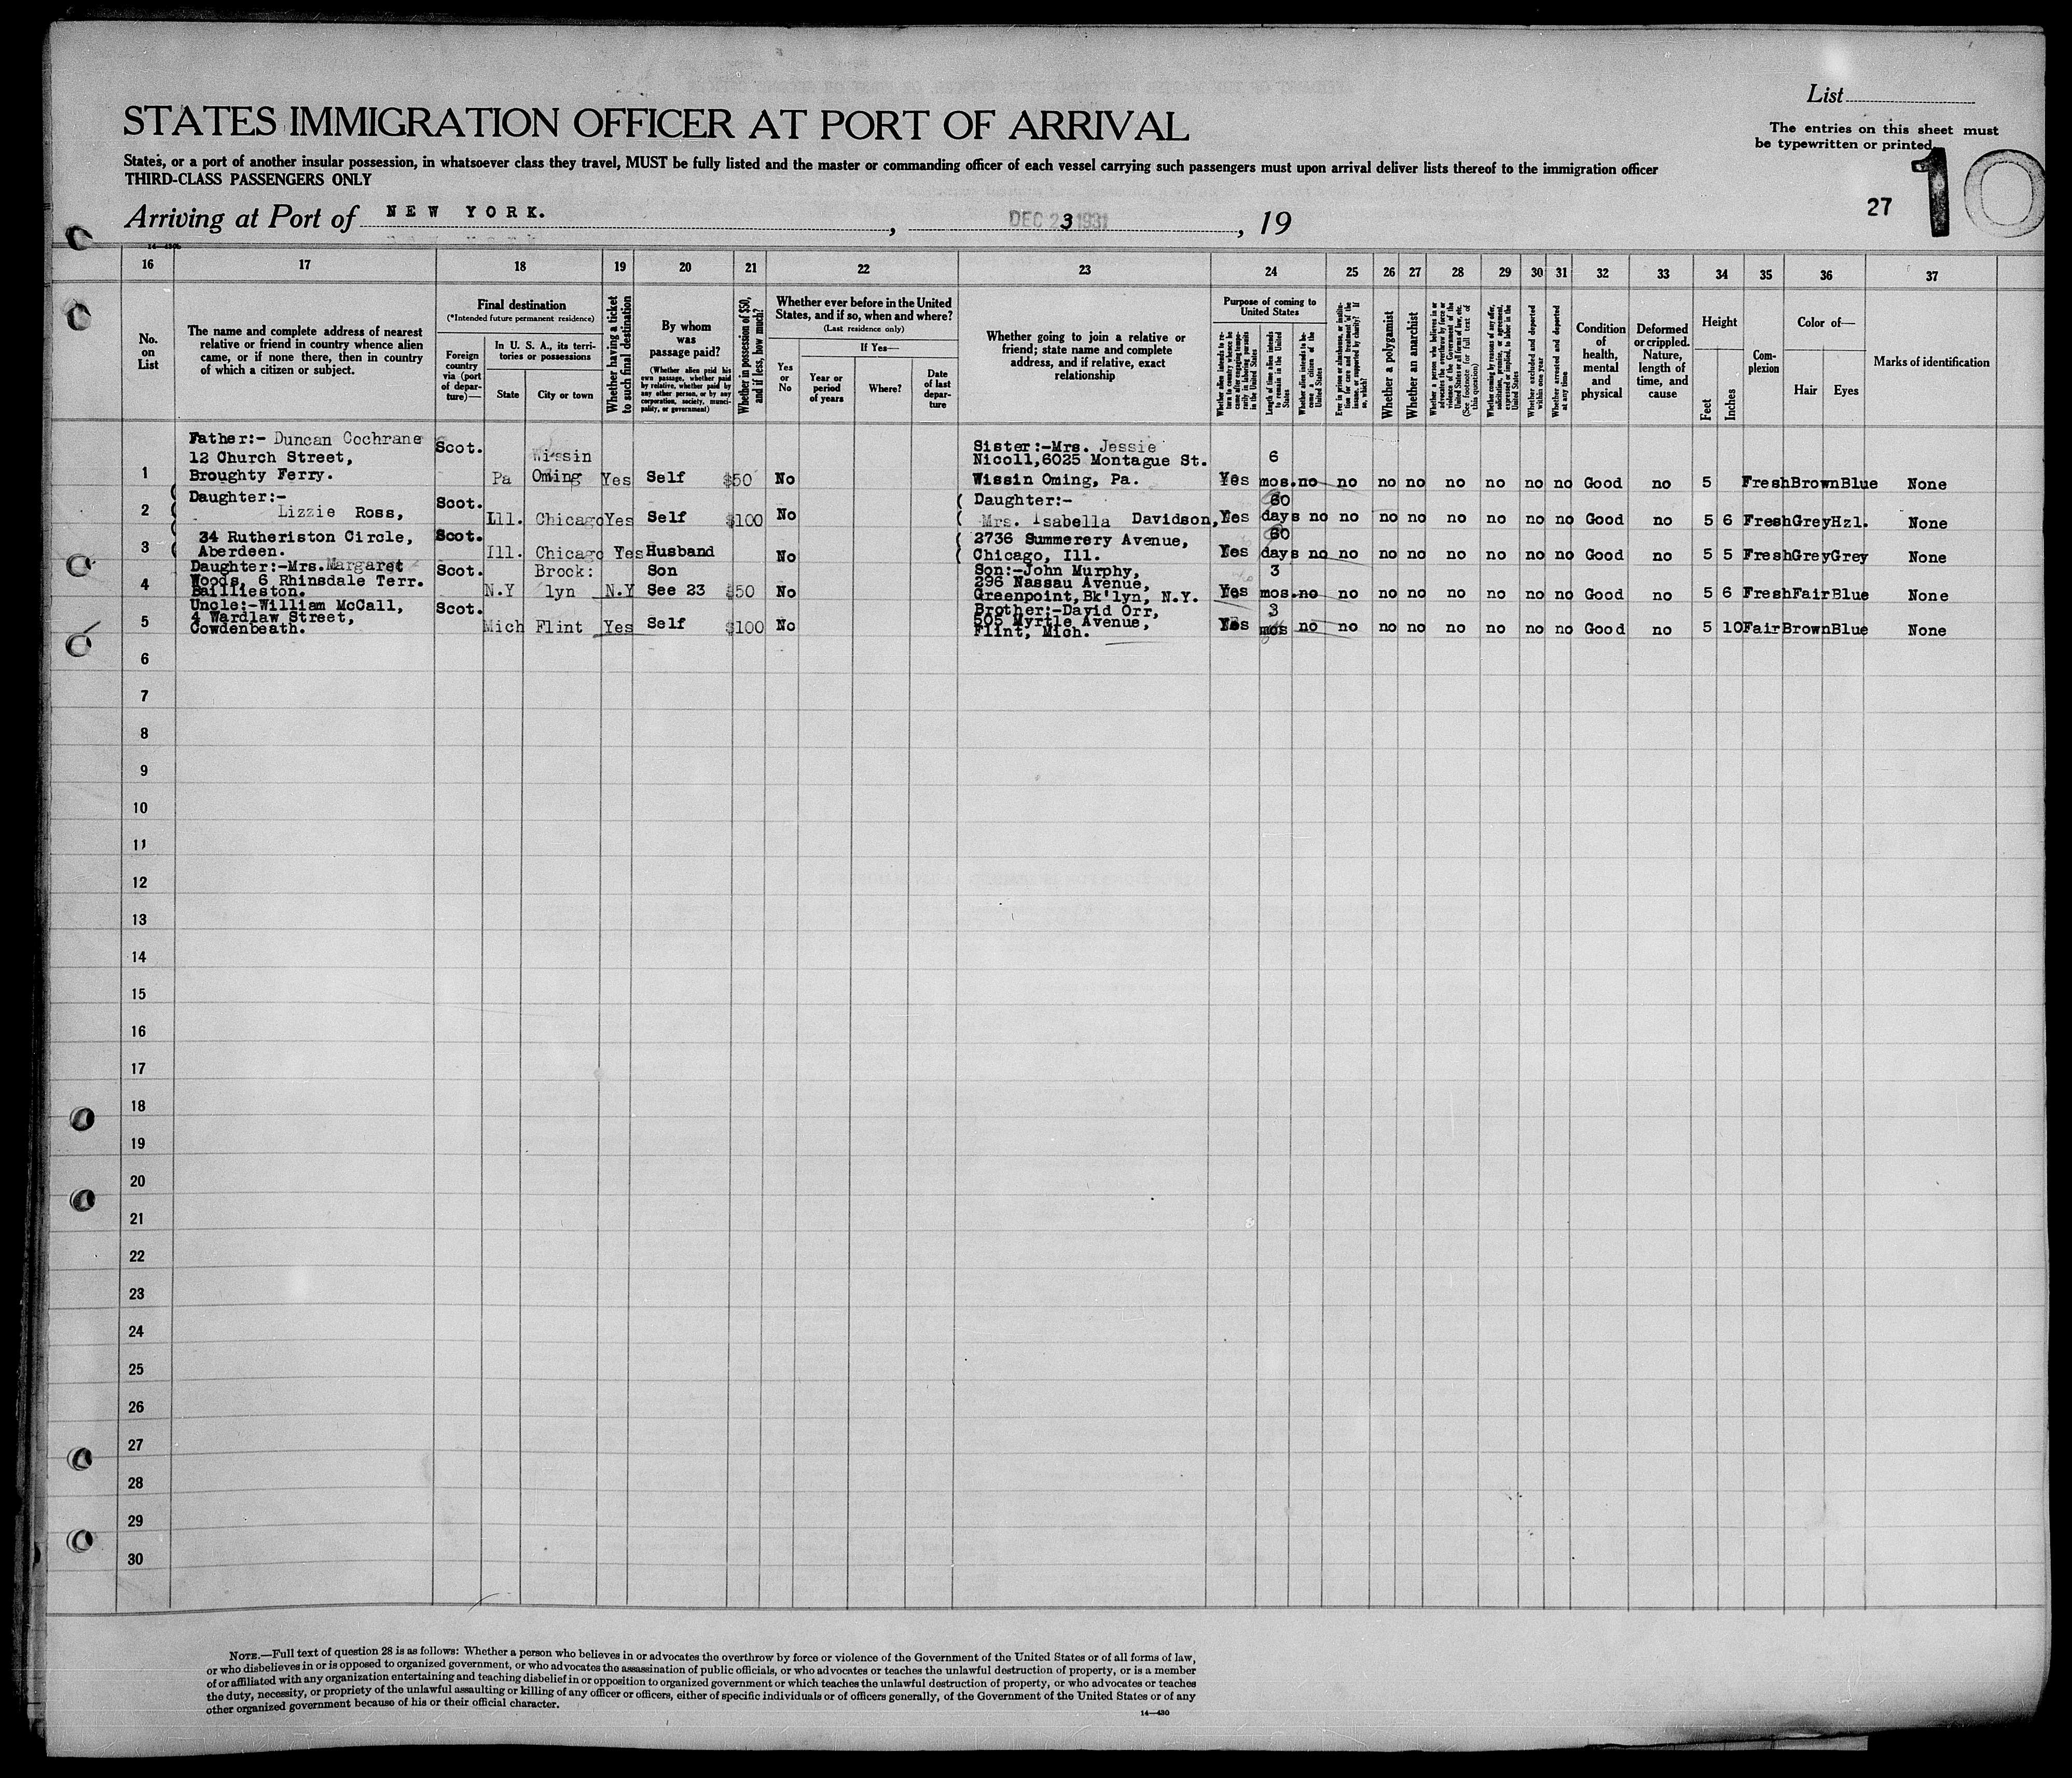 List
STATES IMMIGRATION OFFICER AT PORT OF ARRIVAL
The entries on this sheet must
be typewritten or printed.
States, or a port of another insular possession, in whatsoever class they travel, MUST be fully listed and the master or commanding officer of each vessel carrying such passengers must upon arrival deliver lists thereof to the immigration officer
THIRD-CLASS PASSENGERS ONLY
Arriving at Port of NEW YORK. , DEC 23 1931 , 19
27 10
14—430b
16 17 18 19 20 21 22 23 24 25 26 27 28 29 30 31 32 33 34 35 36 37
No.
on
List
The name and complete address of nearest
relative or friend in country whence alien
came, or if none there, then in country
of which a citizen or subject.
Final destination
(*Intended future permanent residence)
Foreign
country
via (port
of depar-
ture)—
In U. S. A., its terri-
tories or possessions
State
City or town
Whether having a ticket
to such final destination
By whom
was
passage paid?
(Whether alien paid his
own passage, whether paid
by relative, whether paid by
any other person, or by any
corporation, society, munici-
pality, or government)
Whether in possession of $50,
and if less, how much?
Whether ever before in the United
States, and if so, when and where?
(Last residence only)
Yes
or
No
If Yes—
Year or
period
of years
Where?
Date
of last
depar-
ture
Whether going to join a relative or
friend; state name and complete
address, and if relative, exact
relationship
Purpose of coming to
United States
Whether alien intends to re-
turn to country whence he
came after engaging tempo-
rarily in laboring pursuits
in the United States
Length of time alien intends
to remain in the United
States
Whether alien intends to be-
come a citizen of the
United States
Ever in prison or almshouse, or institu-
tion for care and treatment of the
insane, or supported by charity? If
so, which?
Whether a polygamist
Whether an anarchist
Whether a person who believes in or
advocates the overthrow by force or
violence of the Government of the
United States or all forms of law, etc.
(See footnote for full text of
this question)
Whether coming by reasons of any offer,
solicitation, promise, or agreement,
expressed or implied, to labor in the
United States
Whether excluded and deported
within one year
Whether arrested and deported
at any time
Condition
of
health,
mental
and
physical
Deformed
or crippled.
Nature,
length of
time, and
cause
Height
Feet
Inches
Com-
plexion
Color of—
Hair
Eyes
Marks of identification
Father:- Duncan Cochrane
12 Church Street,
Broughty Ferry.
1 Scot. Pa Wissin
Oming Yes Self $50 No
Sister:-Mrs. Jessie
Nicoll,6025 Montague St.
Wissin Oming, Pa.
Yes 6
mos. no no no no no no no no Good no 5 Fresh Brown Blue None
Daughter:-
Lizzie Ross,
2 Scot. Ill. Chicago Yes Self $100 No
Daughter:-
Mrs. Isabella Davidson,
Yes 60
days no no no no no no no no Good no 5 6 Fresh Grey Hzl. None
34 Rutheriston Circle,
Aberdeen.
3 Scot. Ill. Chicago Yes Husband No
2736 Summerery Avenue,
Chicago, Ill.
Yes 60
days no no no no no no no no Good no 5 5 Fresh Grey Grey None
Daughter:-Mrs.Margaret
Woods, 6 Rhinsdale Terr.
Baillieston.
4 Scot. N.Y Brook:
lyn N.Y Son
See 23 $50 No
Son:-John Murphy,
296 Nassau Avenue,
Greenpoint,Bk'lyn, N.Y.
Yes 3
mos. no no no no no no no no Good no 5 6 Fresh Fair Blue None
Uncle:-William McCall,
4 Wardlaw Street,
Cowdenbeath.
5 Scot. Mich Flint Yes Self $100 No
Brother:-David Orr,
505 Myrtle Avenue,
Flint, Mich.
Yes 3
mos no no no no no no no no Good no 5 10 Fair Brown Blue None
6
7
8
9
10
11
12
13
14
15
16
17
18
19
20
21
22
23
24
25
26
27
28
29
30
NOTE.—Full text of question 28 is as follows: Whether a person who believes in or advocates the overthrow by force or violence of the Government of the United States or of all forms of law,
or who disbelieves in or is opposed to organized government, or who advocates the assassination of public officials, or who advocates or teaches the unlawful destruction of property, or is a member
of or affiliated with any organization entertaining and teaching disbelief in or opposition to organized government or which teaches the unlawful destruction of property, or who advocates or teaches
the duty, necessity, or propriety of the unlawful assaulting or killing of any officer or officers, either of specific individuals or of officers generally, of the Government of the United States or of any
other organized government because of his or their official character.
14—430